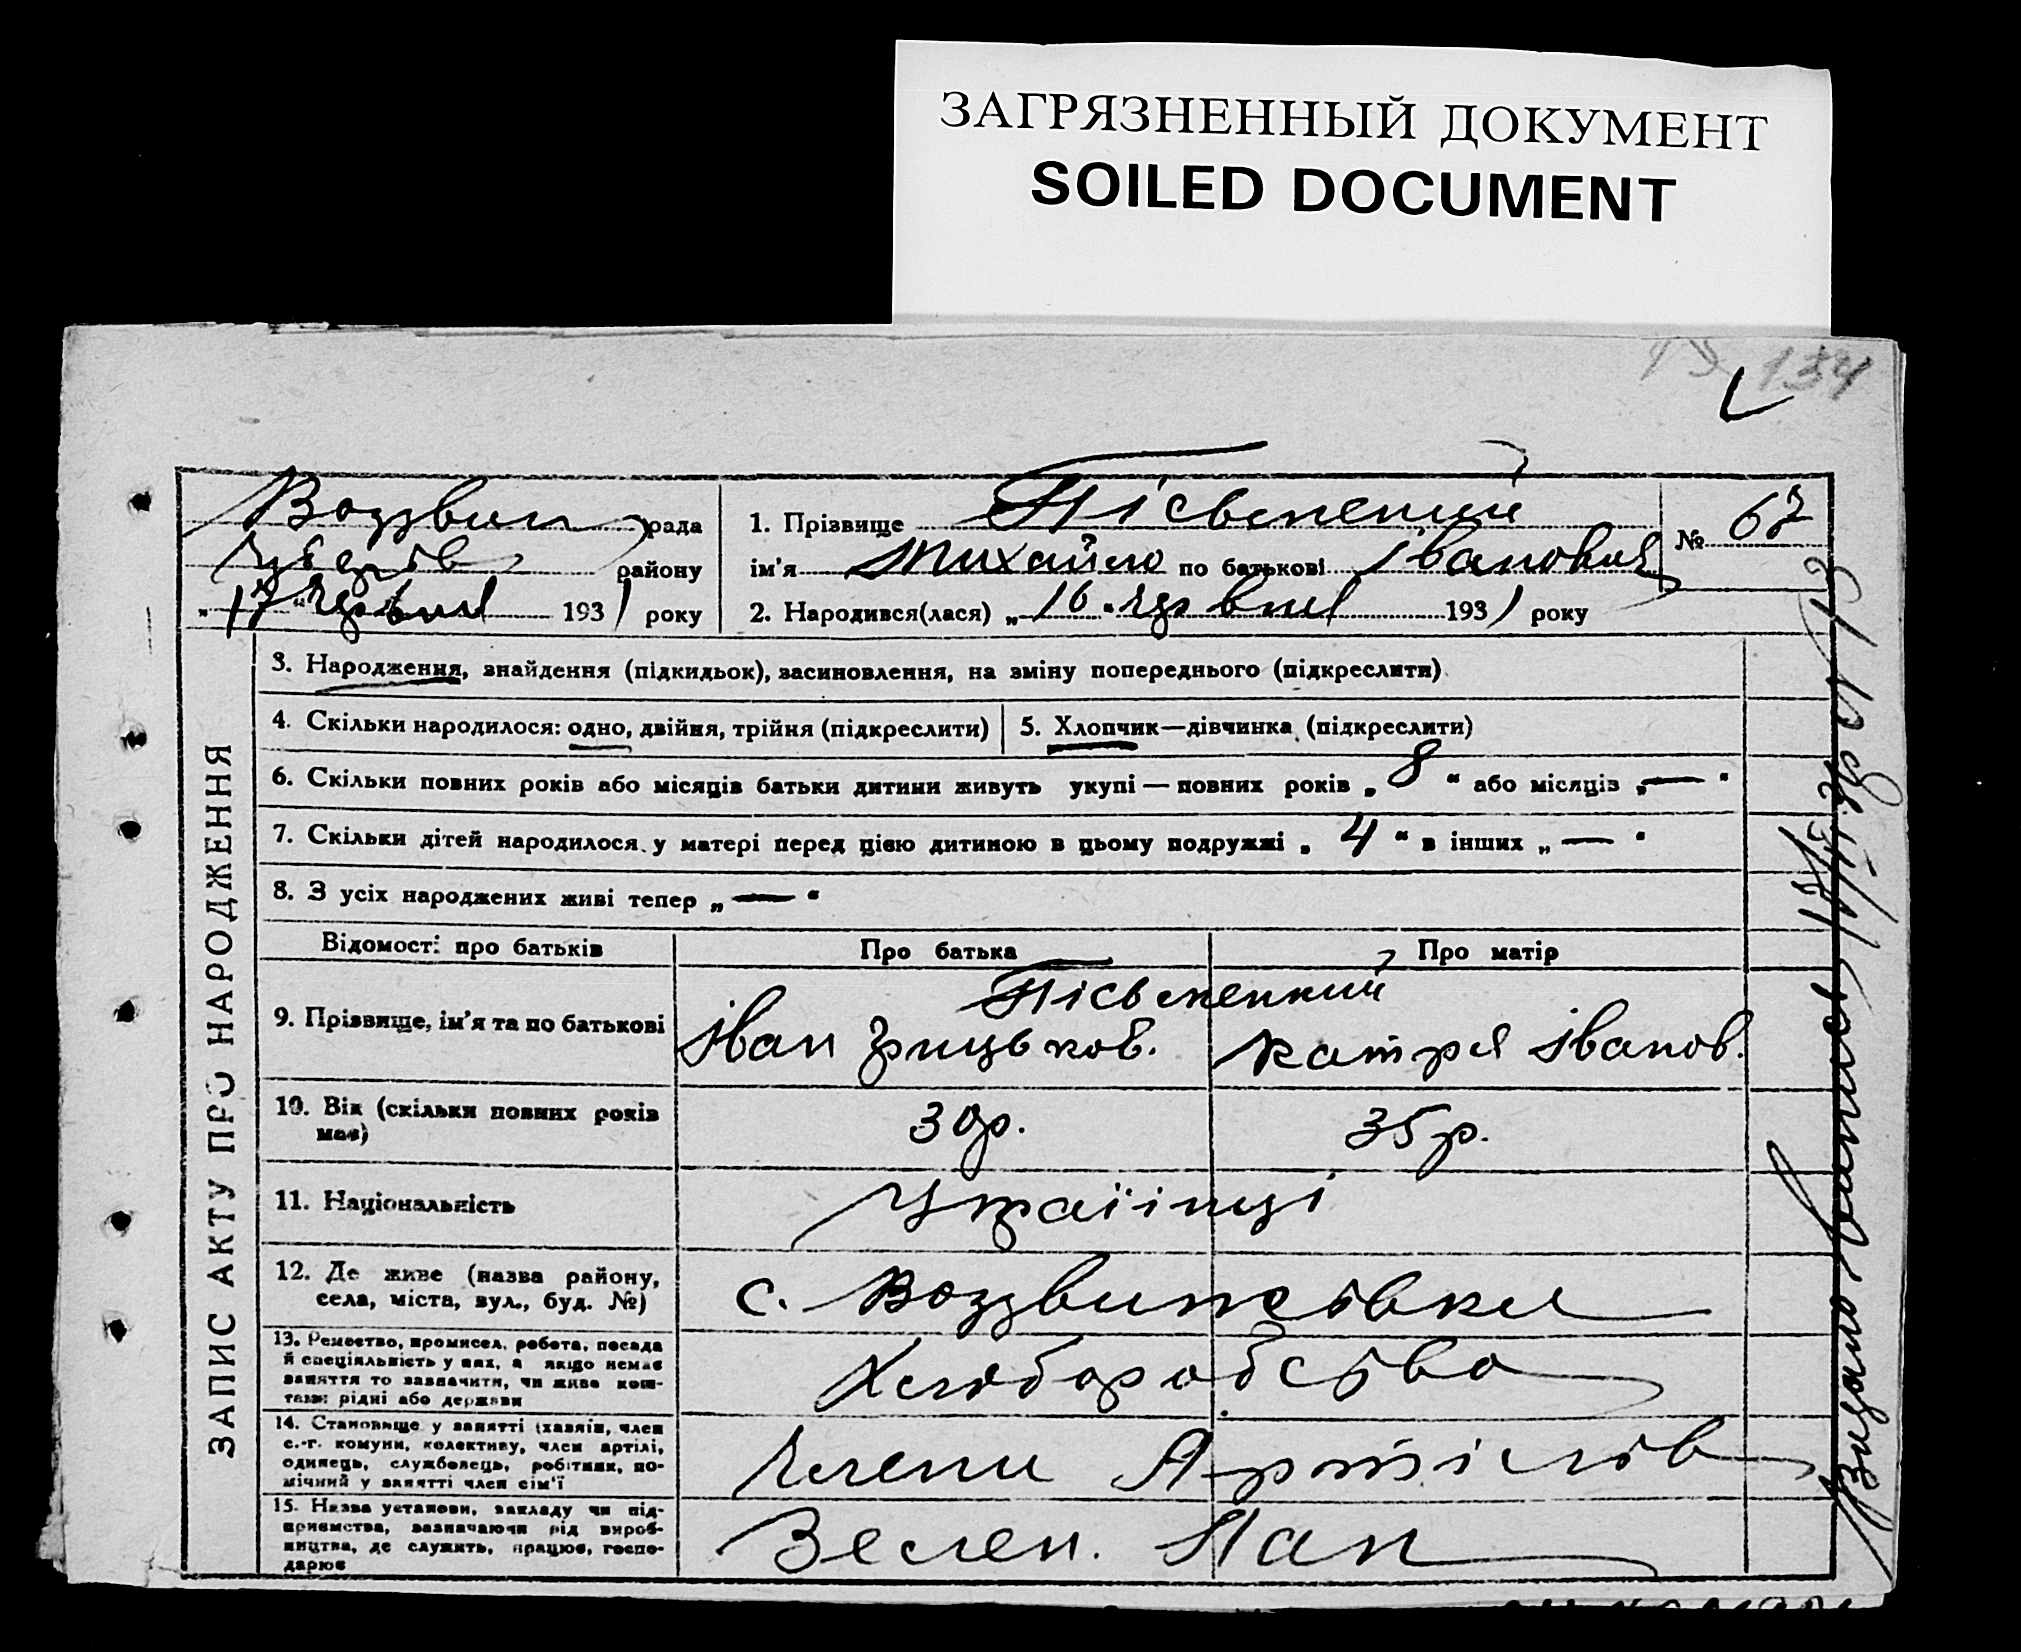 ЗАГРЯЗНЕННЫЙ ДОКУМЕНТ
SOILED DOCUMENT
134
Воздвиж рада
району
„17“ червня 1931 року
1. Прізвище Пісьменний
ім'я Михайло по батькові Іванович
№ 67
2. Народився(лася) „16“ червня 1931 року
ЗАПИС АКТУ ПРО НАРОДЖЕННЯ
3. Народження, знайдення (підкидьок), засиновлення, на зміну попереднього (підкреслити)
4. Скільки народилося: одно, двійня, трійня (підкреслити)
5. Хлопчик—дівчинка (підкреслити)
6. Скільки повних років або місяців батьки дитини живуть укупі — повних років „8“ або місяців „—“
7. Скільки дітей народилося у матері перед цією дитиною в цьому подружжі „4“ в інших „—“
8. З усіх народжених живі тепер „—“
Відомості про батьків
Про батька
Про матір
9. Прізвище, ім'я та по батькові
Пісьменний
Іван Грицьков.
Катря Іванов.
10. Вік (скільки повних років має)
30р.
35р.
11. Національність
Украіінці
12. Де живе (назва району,
села, міста, вул., буд. №)
с. Воздвижівки
13. Ремество, промисел, робота, посада
й спеціяльність у них, а якщо немає
заняття то зазначити, чи живе кош-
тами рідні або держави
Хліборобство
14. Становище у занятті (хазяїн, член
с.-г. комуни, колективу, член артілі,
одинець, службовець, робітник, по-
мічний у занятті член сім'ї
Члени Артілів
15. Назва установи, закладу чи під-
приємства, зазначаючи рід вироб-
ництва, де служить, працює, госпо-
дарює
Зелен. Лан
Видано